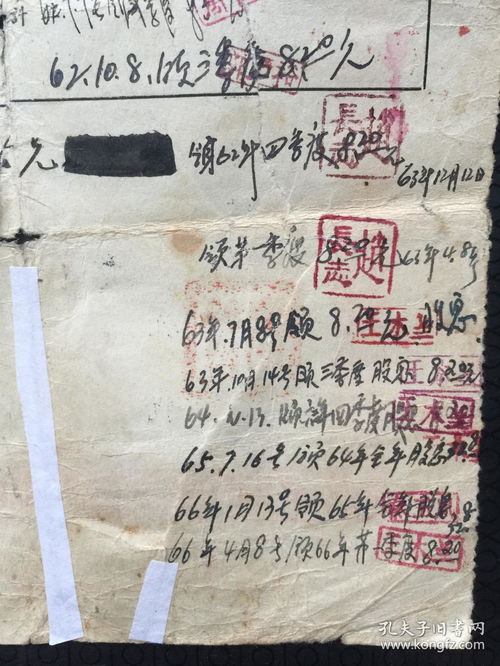 62.10.8.领三季度8.20元
元
领62年四季度8.20元
63年12月12日
领第一季度8.20元 63年4.8号
趙長志
63年7月8号领8.20元股息
63年10月14号领三季度股息8.20元
64.2.13.领 年四季度股息
65.7.16号领64年全年股息
66年1月13号领65年全年股息
66年4月8号领66年第一季度8.20
孔夫子旧书网
www.kongfz.com